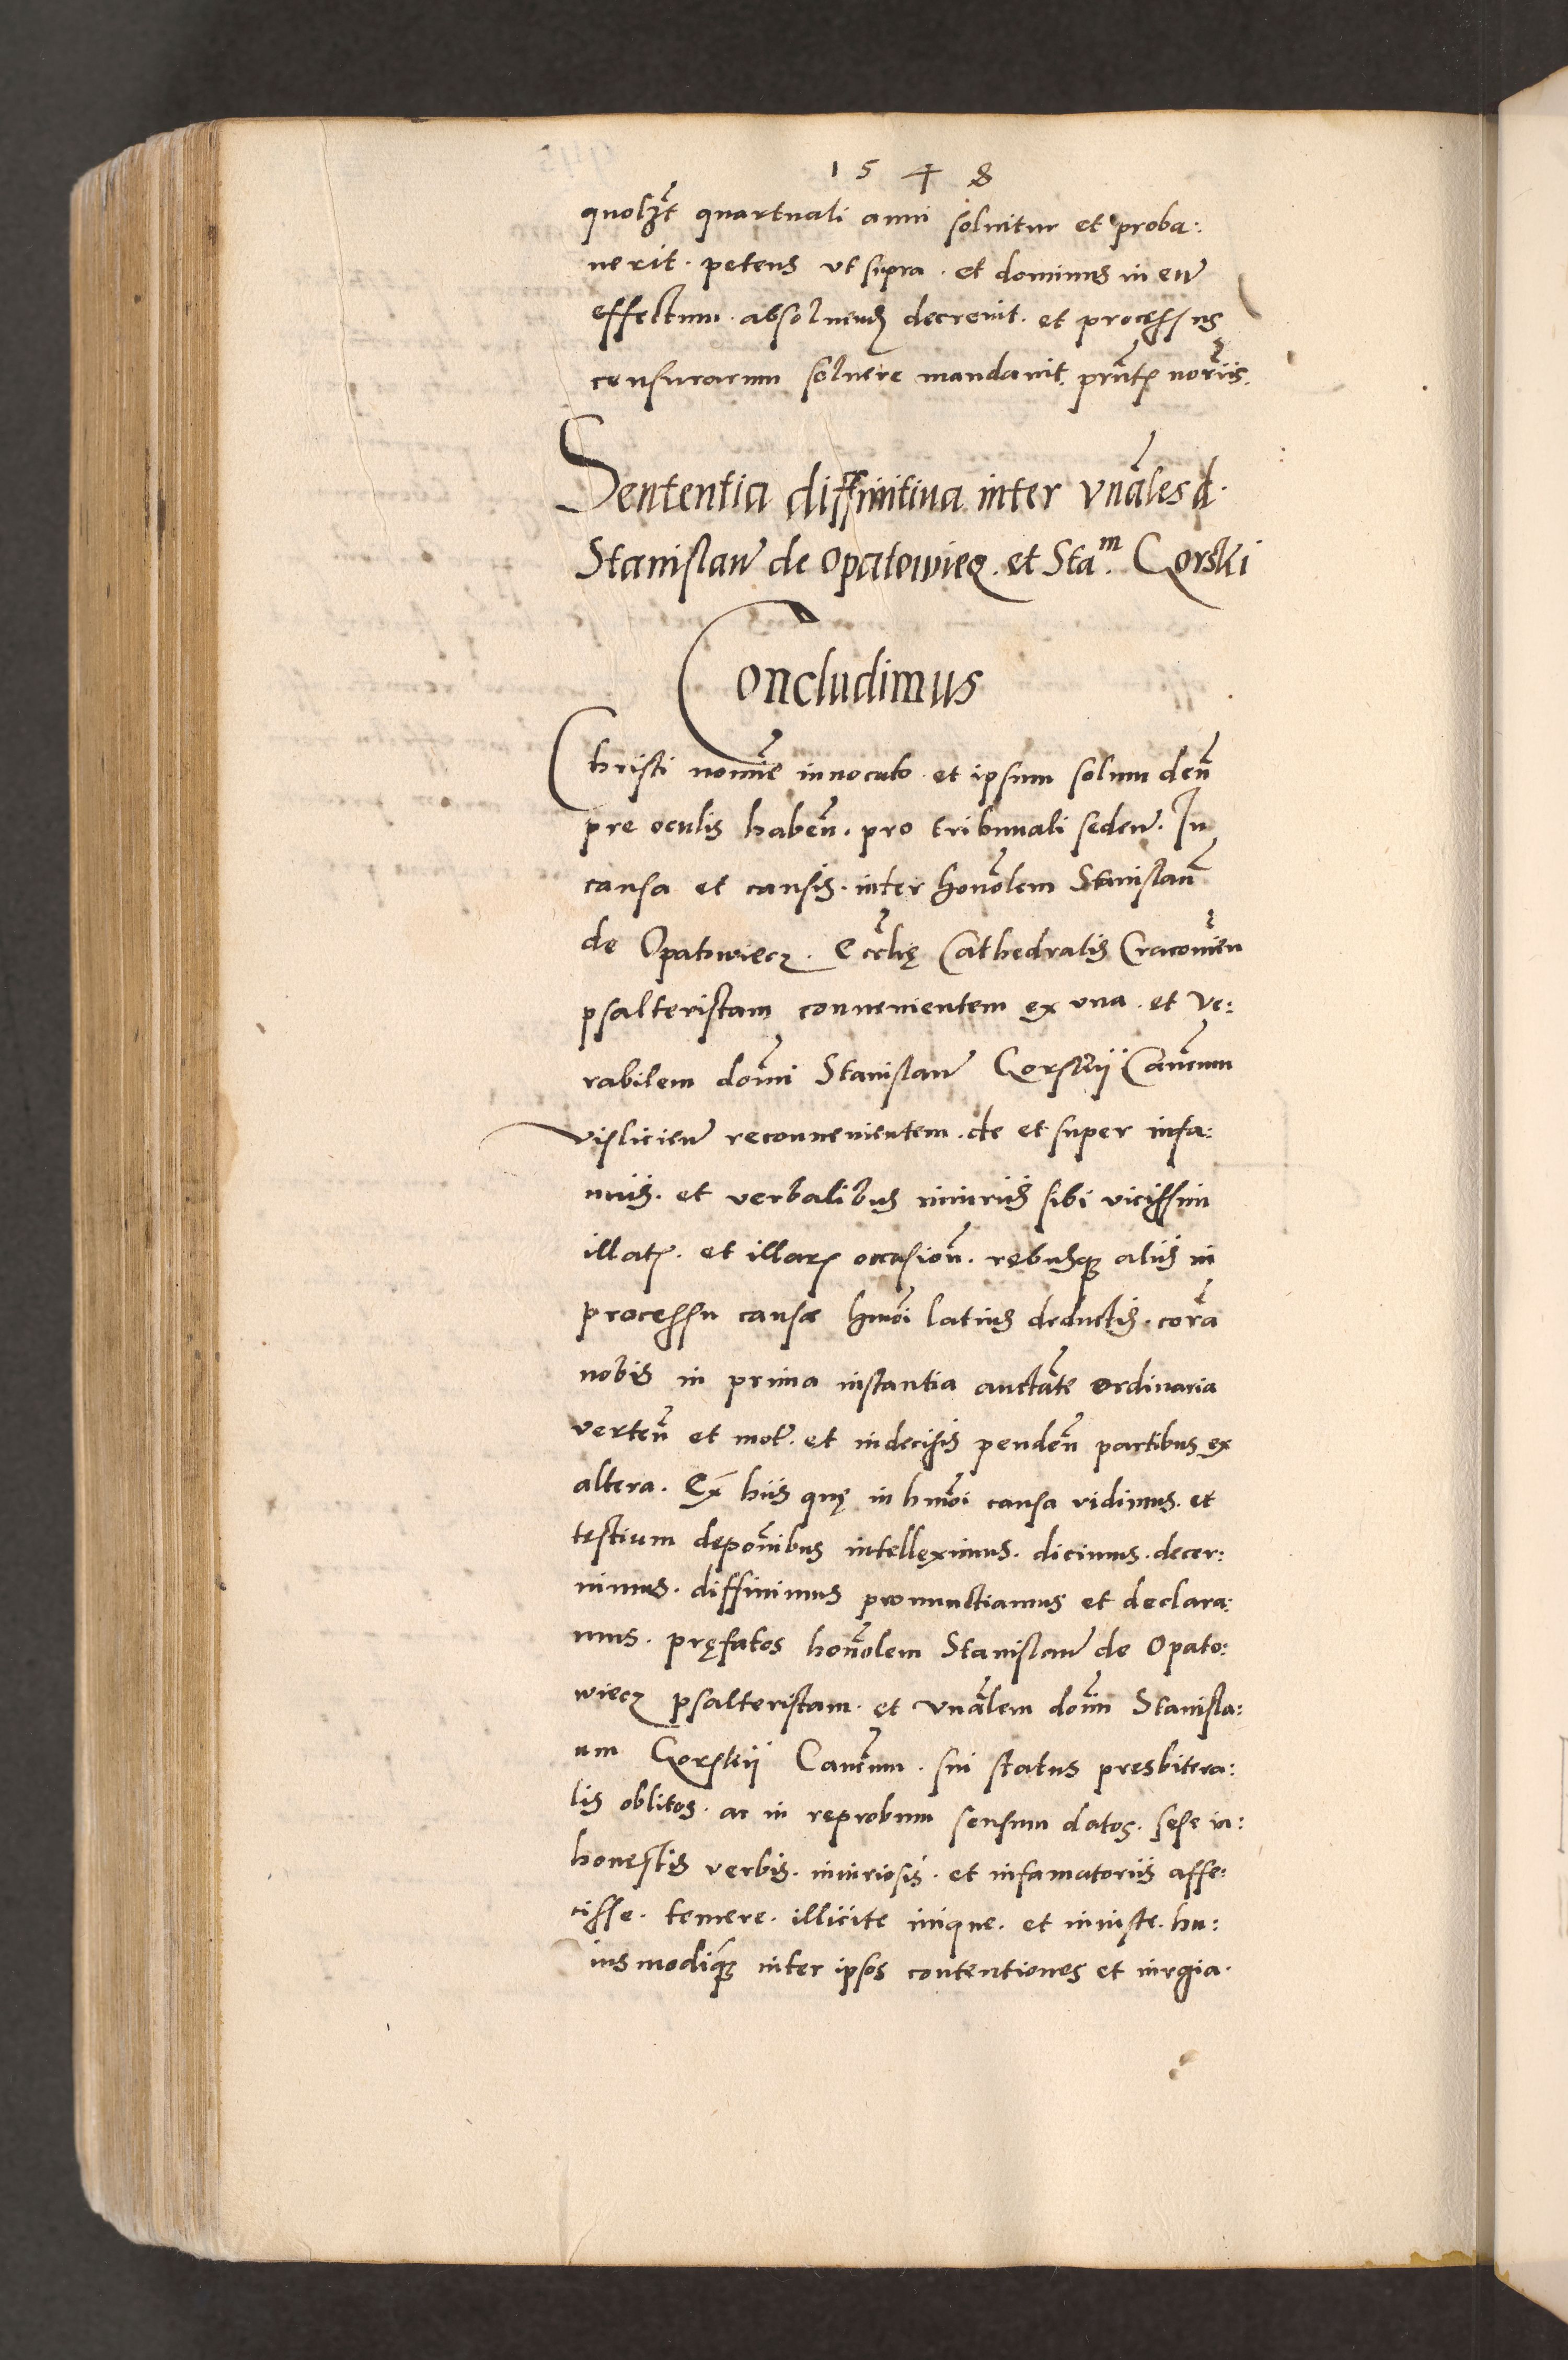 1548
quolꝫt quartuali anni soluitur et proba:
uerit. petens vt supra. et dominus in eu̅
effectum. absoluend decreuit. et processus
censurarum soluere mandauit. pn̅t noriis.
Sententia diffinitiua inter vn̅ales d.
Stanislau̅ de Opatowiecz. et Staᵐ. Gorski
Concludimus
Christi nomi̅e inuocato et ipsum solum deu̅
pre oculis haben̅. pro tribunali seden̅. In
causa et causis. inter honōlem Stanislau̅
de Opatowiecz. Eccl̅ię Cathedralis Cracouien̅
psalteristam conuenientem ex vna. et Ve:
rabilem dom̅i Stanislau̅ Gorskii Can̅cum
Vislicien̅ reconuenientem. de et super infa:
miis. et verbalibus iniuriis sibi vicissim
illat. et illar occasion̅. rebusqꝫ aliis in
processu causæ hmo̅i latius deductis. cora̅
nobis in prima instantia auct̅ate ordinaria
verten̅ et mot. et indecisis penden̅ partibus ex
altera. Ex hiis quę in hmo̅i causa vidimus. et
testium depon̅ibus intelleximus. dicimus. decer:
nimus. diffinimus pronunctiamus et declara:
mus. pręfatos honōlem Stanislau̅ de Opato:
wiecz psalteristam. et vn̅alem dom̅n Stanisla:
um Gorskii Can̅cum. sui status presbitera:
lis oblitos. ac in reprobum sensum datos. sese in:
honestis verbis. iniuriosis. et infamatoriis affe:
cisse. temere. illicite inique. et iniuste. hu:
iusmodiqꝫ inter ipsos contentiones et iurgia.